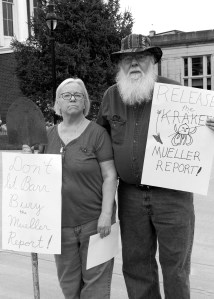 Don't
let Barr
Bury
the
Mueller
Report!
RELEASE
the
"KRAKEN
MUELLER
REPORT!